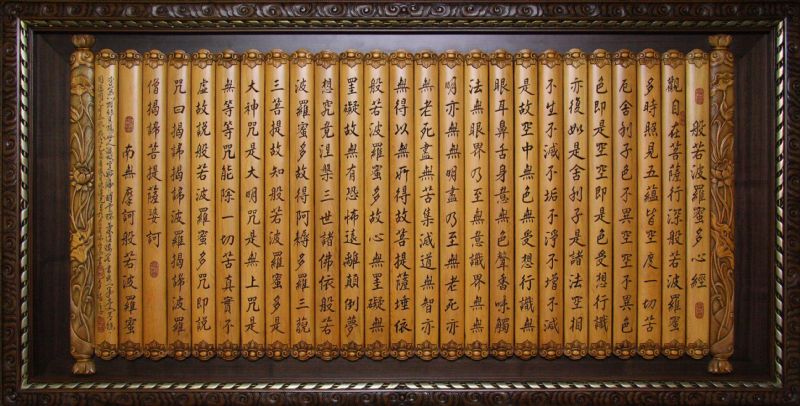 般若波羅蜜多心經
觀自在菩薩行深般若波羅蜜
多時照見五蘊皆空度一切苦
厄舍利子色不異空空不異色
色即是空空即是色受想行識
亦復如是舍利子是諸法空相
不生不滅不垢不淨不增不減
是故空中無色無受想行識無
眼耳鼻舌身意無色聲香味觸
法無眼界乃至無意識界無無
明亦無無明盡乃至無老死亦
無老死盡無苦集滅道無智亦
無得以無所得故菩提薩埵依
般若波羅蜜多故心無罣礙無
罣礙故無有恐怖遠離顛倒夢
想究竟涅槃三世諸佛依般若
波羅蜜多故得阿耨多羅三藐
三菩提故知般若波羅蜜多是
大神咒是大明咒是無上咒是
無等等咒能除一切苦真實不
虛故說般若波羅蜜多咒即說
咒曰揭諦揭諦波羅揭諦波羅
僧揭諦菩提薩婆訶
南無摩訶般若波羅蜜